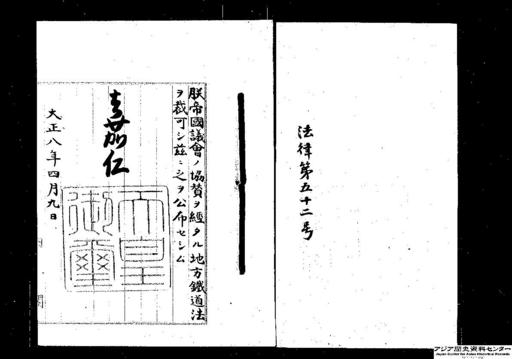 法律第五十二号
朕帝國議會ノ協賛ヲ經タル地方鐵道法
ヲ裁可シ茲ニ之ヲ公布セシム
嘉仁
天皇
御璽
大正八年四月九日
アジア歴史資料センター
Japan Center for Asian Historical Records